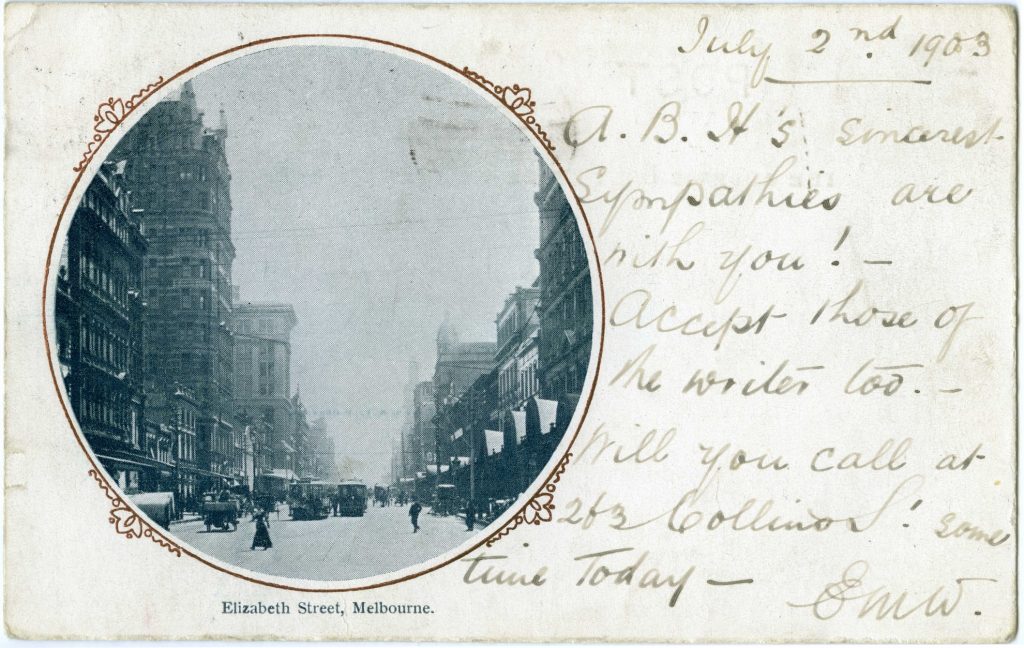 July 2nd 1903
A. B. H's sincerest
Sympathies are
with you! —
Accept those of
the writer too. —
Will you call at
263 Collins St. some
time Today —
EMW.
Elizabeth Street, Melbourne.